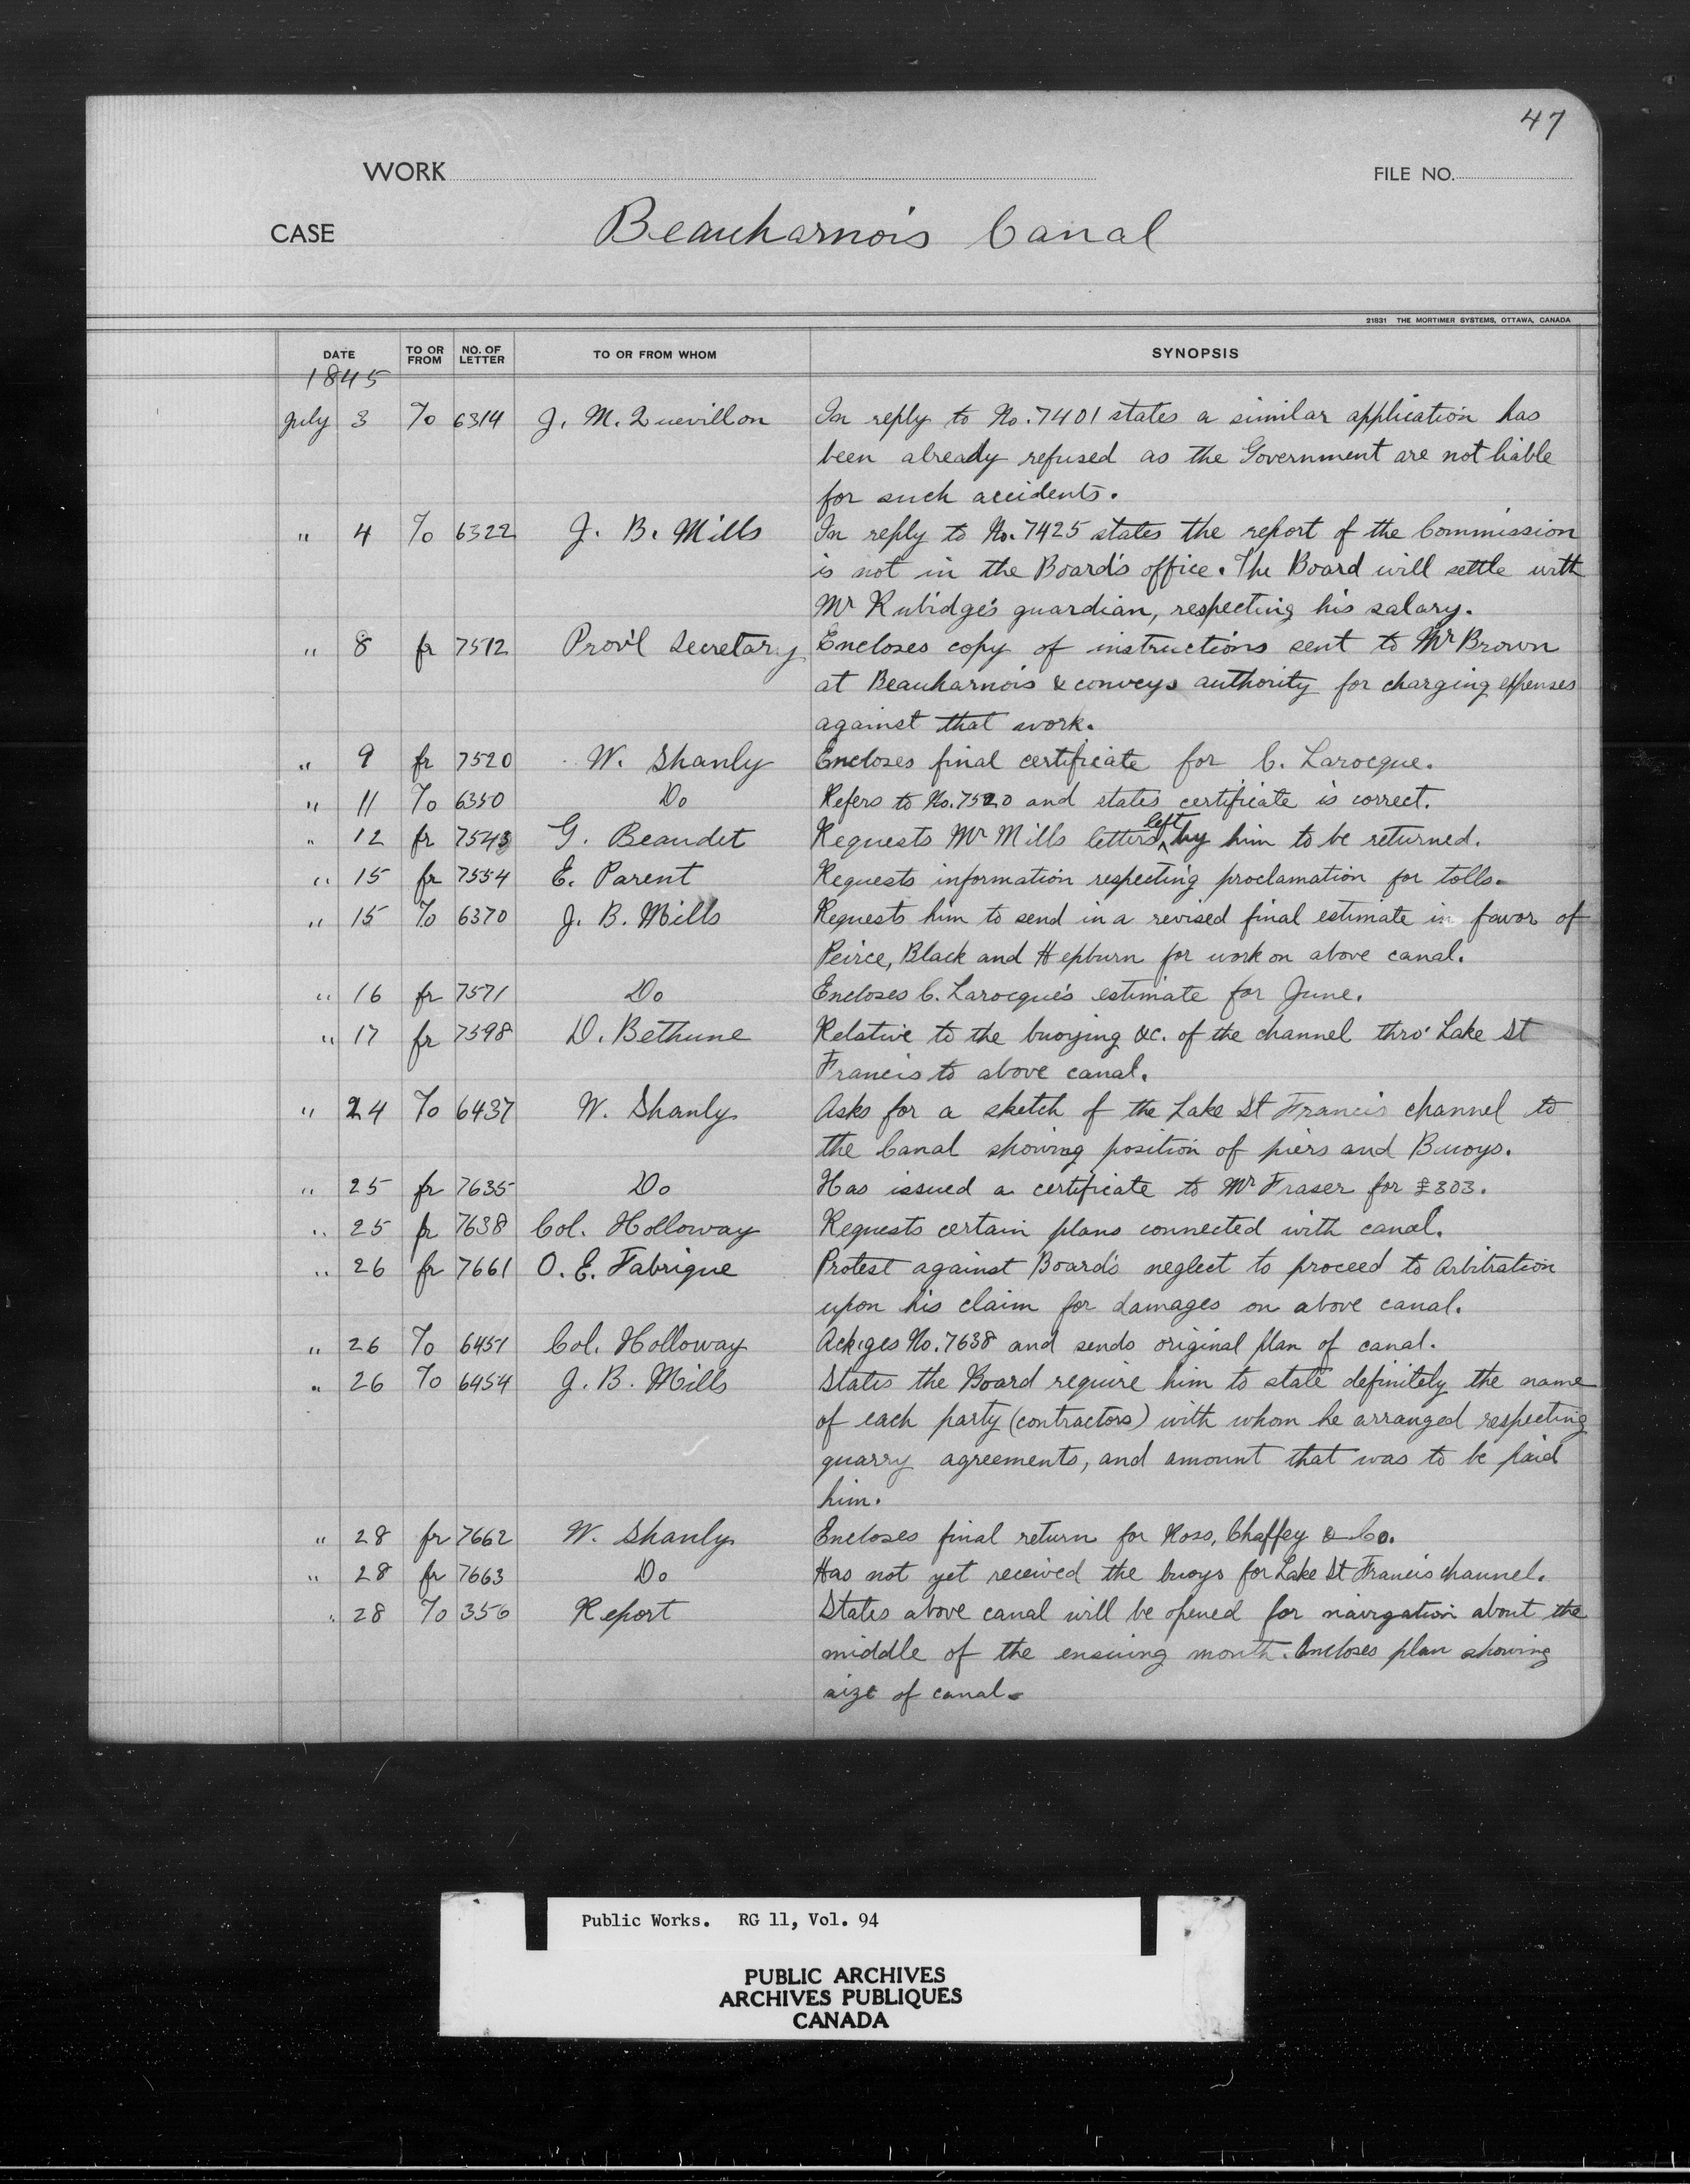 47
WORK
FILE NO.
CASE Beauharnois Canal
21831 THE MORTIMER SYSTEMS, OTTAWA, CANADA
DATE TO OR FROM NO. OF LETTER TO OR FROM WHOM SYNOPSIS
1845
July 3 To 6314 J. M. Quevillon In reply to No. 7401 states a similar application has
been already refused as the Government are not liable
for such accidents.
" 4 To 6322 J. B. Mills In reply to No. 7425 states the report of the Commission
is not in the Board's office. The Board will settle with
Mr Rubidge's guardian, respecting his salary.
" 8 fr 7512 Prov'l Secretary Encloses copy of instructions sent to Mr Brown
at Beauharnois & conveys authority for charging expenses
against that work.
" 9 fr 7520 W. Shanly Encloses final certificate for C. Larocque.
" 11 To 6350 Do Refers to No. 7520 and states certificate is correct.
" 12 fr 7543 G. Beaudet Requests Mr Mills letters left by him to be returned.
" 15 fr 7554 E. Parent Requests information respecting proclamation for tolls.
" 15 To 6370 J. B. Mills Requests him to send in a revised final estimate in favor of
Peirce, Black and Hepburn for work on above canal.
" 16 fr 7571 Do Encloses C. Larocque's estimate for June.
" 17 fr 7598 D. Bethune Relative to the buoying &c. of the channel thro' Lake St
Francis to above canal.
" 24 To 6437 W. Shanly Asks for a sketch of the Lake St Francis channel to
the Canal showing position of piers and Buoys.
" 25 fr 7635 Do Has issued a certificate to Mr Fraser for £303.
" 25 fr 7638 Col. Holloway Requests certain plans connected with canal.
" 26 fr 7661 O. E. Fabrique Protest against Board's neglect to proceed to Arbitration
upon his claim for damages on above canal.
" 26 To 6451 Col. Holloway Ack'ges No. 7638 and sends original plan of canal.
" 26 To 6454 J. B. Mills States the Board require him to state definitely the name
of each party (contractors) with whom he arranged respecting
quarry agreements, and amount that was to be paid
him.
" 28 fr 7662 W. Shanly Encloses final return for Ross, Chaffey & Co.
" 28 fr 7663 Do Has not yet received the buoys for Lake St Francis channel.
" 28 To 356 Report States above canal will be opened for navigation about the
middle of the ensuing month. Encloses plan showing
size of canal.
Public Works. RG 11, Vol. 94
PUBLIC ARCHIVES
ARCHIVES PUBLIQUES
CANADA